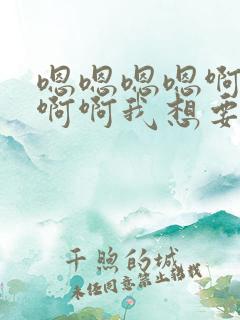 嗯嗯嗯嗯啊
啊啊我想要
千煦的城
未经同意禁止转载